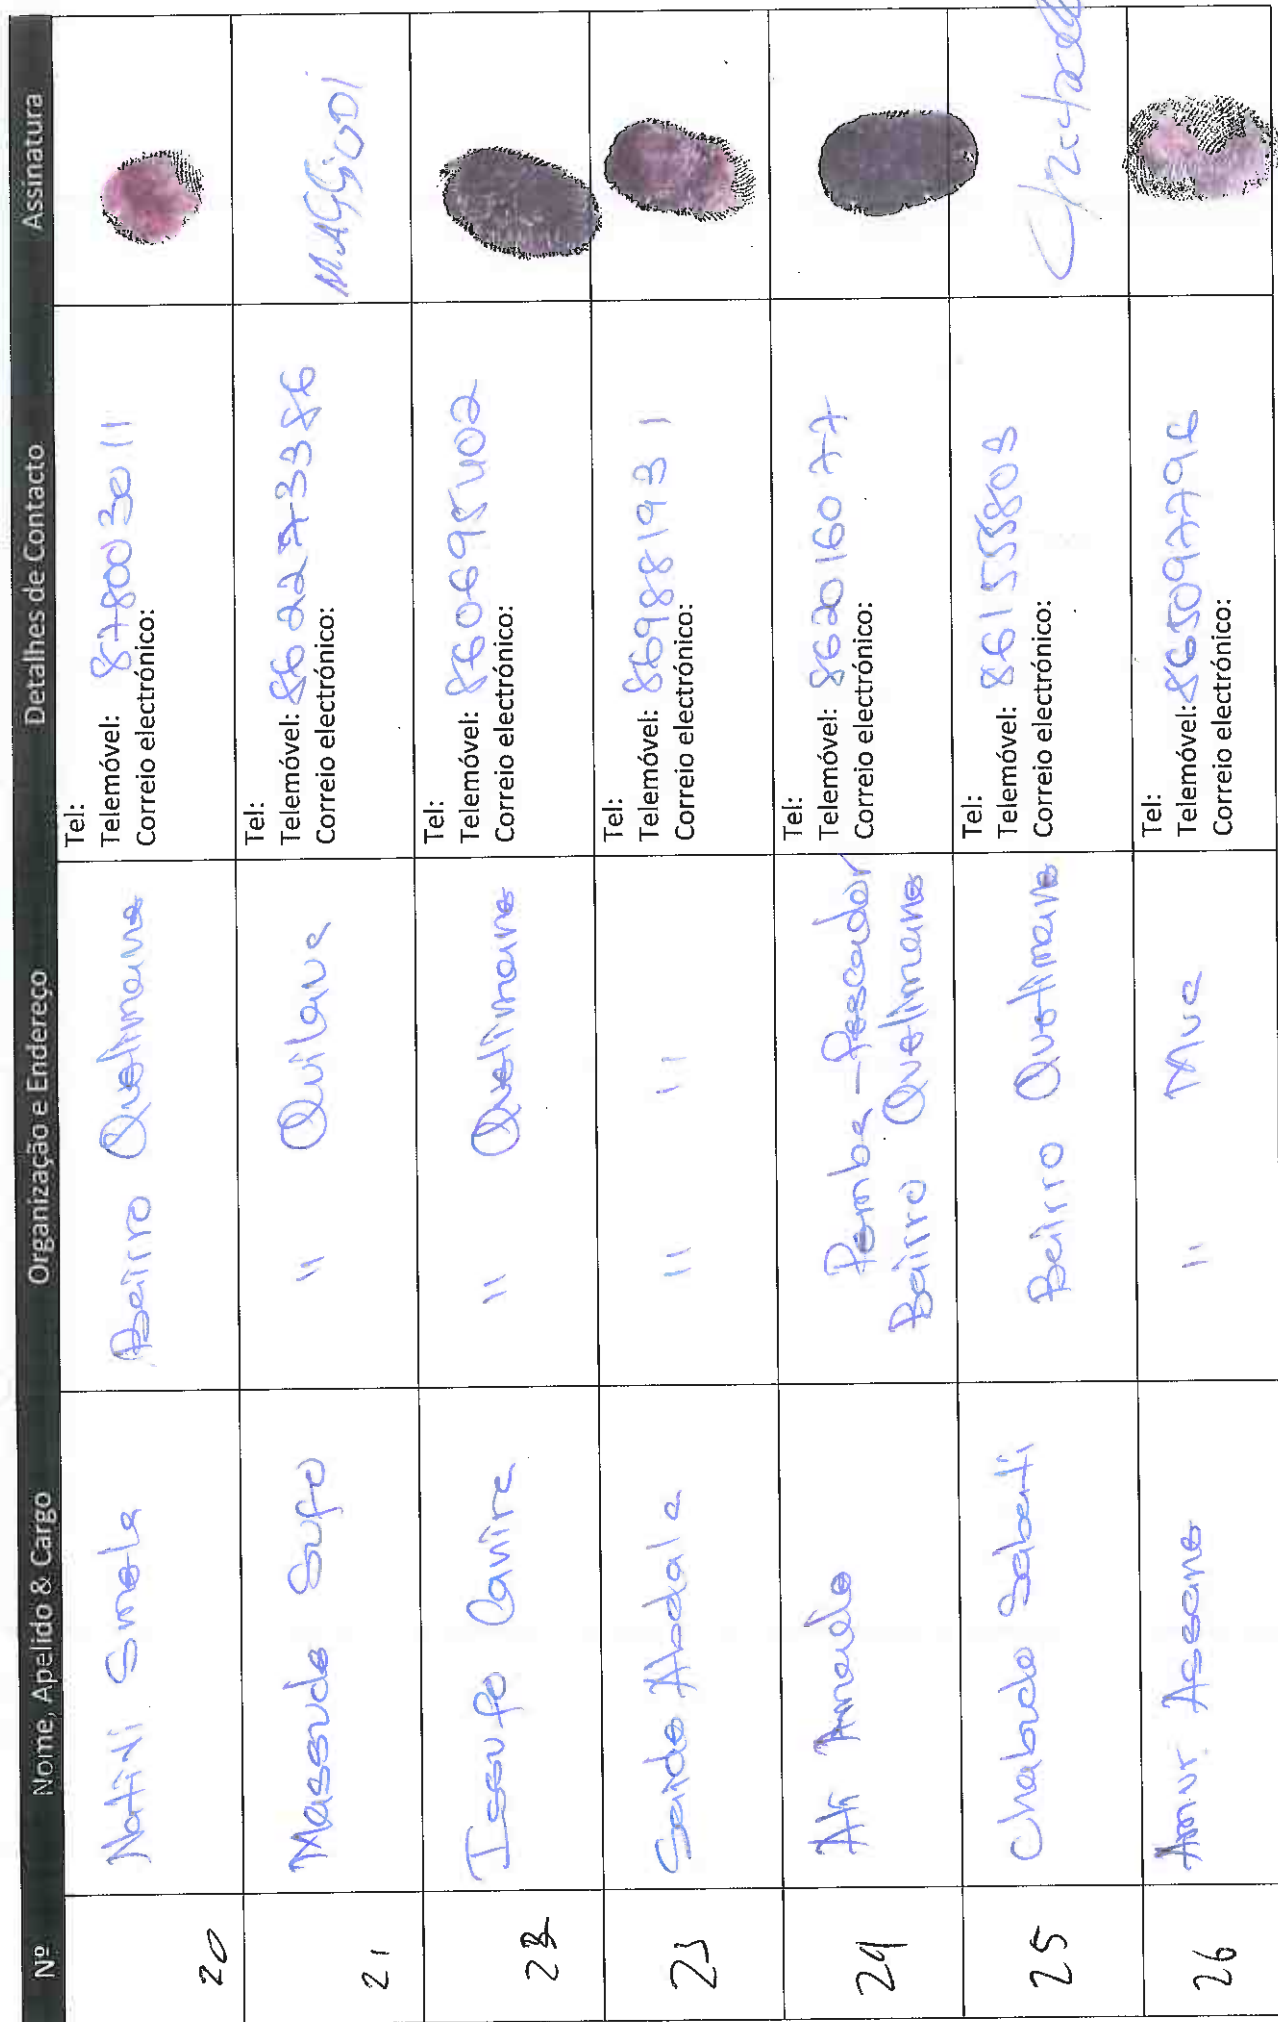 Nº Nome, Apelido & Cargo Organização e Endereço Detalhes de Contacto Assinatura
20 Natiri Smola Bairro Quelimane Tel:
Telemóvel: 878003011
Correio electrónico:
21 Massude Sufo " Quilava Tel:
Telemóvel: 862273386
Correio electrónico:
MASSUDI
22 Issufo Canira " Quelimane Tel:
Telemóvel: 860695402
Correio electrónico:
23 Saide Abdala " " Tel:
Telemóvel: 869881931
Correio electrónico:
24 Ali Amade Pemba - Pescador
Bairro Quelimane
Tel:
Telemóvel: 862016077
Correio electrónico:
25 Chabude Sabati Bairro Quelimane Tel:
Telemóvel: 861555803
Correio electrónico:
26 Amur Asane " Mue Tel:
Telemóvel: 865097796
Correio electrónico: